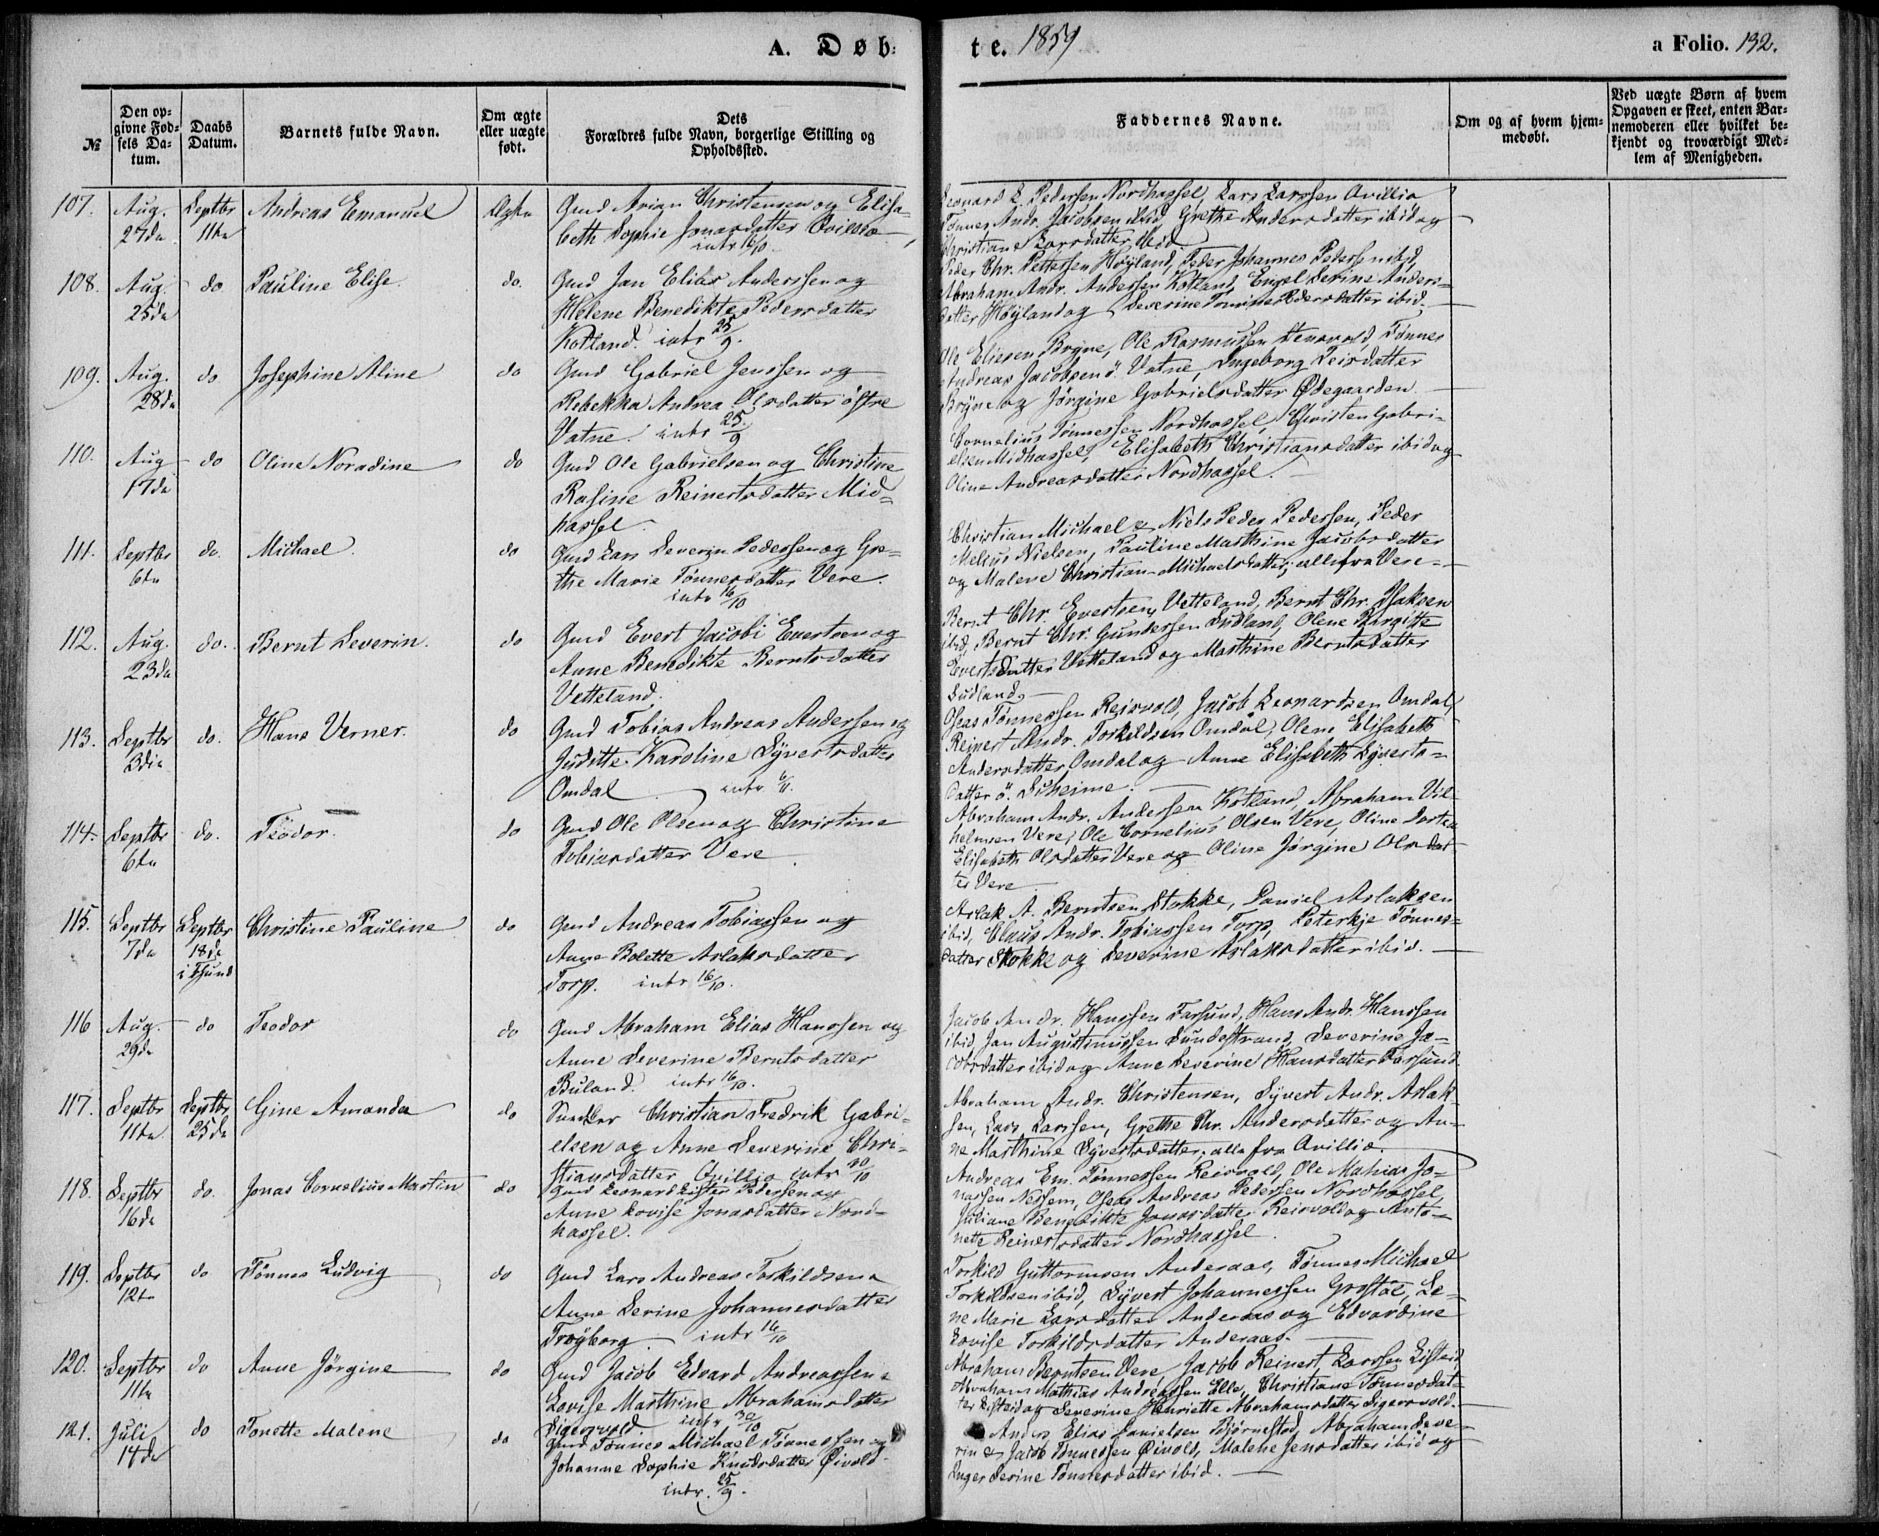 A. Døb-
te. 1859
a Folio. 132.
№
Den op-
givne Fød-
sels Da-
tum.
Daabs
Datum.
Barnets fulde Navn.
Om ægte
eller uægte
født.
Dets
Forældres fulde Navn, borgerlige Stilling og
Opholdssted.
Faddernes Navne.
Om og af hvem hjem-
medøbt.
Ved uægte Børn af hvem
Opgaven er skeet, enten Bar-
nemoderen eller hvilket be-
kjendt og troværdigt Med-
lem af Menigheden.
107. Aug. Septbr Andreas Emanuel Ægte Gmd Arian Christensen og Elisa-
27de 11te beth Sophie Jonasdatter Qvillio
intr 16/10
Leonard L. Pedersen Nordhassel, Lars Larssen Qvillio
Tønnes Andr. Jacobsen ibid, Grethe Andersdatter ibid og
Christiane Larsdatter ibid
108. Aug. do Pauline Elise. do. Gmd Jan Elias Anderssen og
25de Helene Benedikte Pedersdatter
Kotland. intr 25/9.
Peder Chr. Pettersen Høyland, Peder Johannes Pedersen ibid,
Abraham Andr. Anderssen Kotland, Engel Serine Anders-
datter Høyland og Severine Pedersdatter ibid.
109. Aug. do Josephine Aline do Gmd Gabriel Jenssen og
28de Rebekka Andrea Olsdatter östre
Vatne. intr 25/9
Ole Eliesen Bryne, Ole Rasmussen, Tønnes
Andreas Jacobsen ö. Vatne, Ingeborg Leisdatter
Bryne og Jørgine Gabrielsdatter Ødegaarden
110. Aug do Oline Noradine do Gmd Ole Gabrielsen og Christine
17de Rasine Reinertsdatter Mid-
hassel.
Cornelius Tønnessen Nordhassel, Christen Gabri-
elsen Midhassel, Elisabeth Christiansdatter ibid og
Oline Andreasdatter Nordhassel.
111. Septbr do. Michael. do Gmd Lars Severin Pedersen og Gre-
6te the Marie Tønnesdatter Vere.
intr 16/10
Christian Michael & Niels Peder Pedersen, Peder
Melius Nielsen, Pauline Marthine Jacobsdatter
og Malene Christian-Michaelsdatter, alle fra Vere.
112. Aug. do. Bernt Severin. do Gmd Evert Jacobi Evertsen og
23de Anne Benedikte Berntsdatter
Vetteland.
Bernt Chr. Evertsen Vetteland, Bernt Chr. Isaksen
ibid, Bernt Chr. Gundersen Sudland, Olene Birgitte
Evertsdatter Vetteland og Marthine Berntsdatter
Sudland.
113. Septbr do. Hans Verner. do Gmd Tobias Andreas Andersen og
3die Juditte Karoline Syvertsdatter
Omdal intr 6/11.
Oseas Tønnessen Reisvold, Jacob Leonardsen Omdal,
Reinert Andr. Torkildsen Omdal, Olene Elisabeth
Andersdatter Omdal og Anne Elisabeth Syverts-
datter ö.
114. Septbr do. Teodor. do Gmd Ole Olsen og Christine
6te Tobiasdatter Vere
Abraham Andr. Anderssen Kotland, Abraham Vil-
helmsen Vere, Ole Cornelius Olsen Vere, Oline Dortea
Elisabeth Olsdatter Vere og Oline Jørgine Olsdat-
ter Vere
115. Septbr Septbr Christine Pauline do Gmd Andreas Tobiassen og
7de 18de Anne Bolette Aslaksdatter
i Fsund Torp. intr 16/10.
Aslak A. Berntsen Stokke, Daniel Aslaksen
ibid, Claus Andr. Tobiassen Torp, Peterkje Tønnes-
datter Stokke og Severine Aslaksdatter ibid.
116 Aug. do Teodor do Gmd Abraham Elias Hanssen og
29de Anne Severine Berntsdatter
Buland. intr 16/10.
Jacob Andr. Hanssen Farsund, Hans Andr. Hanssen
ibid, Jan Augustinussen Sundestrand, Severine Ja-
cobsdatter ibid og Anne Severine Hansdatter Farsund.
117. Septbr Septbr Gine Amanda do Christian Fredrik Gabri-
11te 25de elsen og Anne Severine Chri-
stiansdatter Qvillio intr 30/10
Abraham Andr. Christensen, Syvert Andr. Aslak-
sen, Lars Larssen, Grethe Chr. Andersdatter og An-
ne Marthine Syvertsdatter, alle fra Qvillio.
118. Septbr do. Jonas Cornelius Martin do Gmd Leonard Lister Pedersen og
16de Anne Lovise Jonasdatter Nord-
hassel.
Andreas Em. Tønnessen Reisvold, Ole Mathias Jo-
nassen Nessem, Oseas Andreas Pedersen Nordhassel,
Juliane Benedikte Jonasdatter Reisvold og Anto-
nette Reinertsdatter Nordhassel.
119. Septbr do Tønnes Ludvig do Gmd Lars Andreas Torkildsen &
12te Anne Serine Johannesdatter
Trøyborg. intr 16/10
Torkild Guttormsen Anderaas, Tønnes Michael
Torkildsen ibid, Syvert Johannessen Grostøl, Le-
ne Marie Larsdatter Anderaas og Edvardine
Lovise Torkildsdatter Anderaas.
120. Septbr do Anne Jörgine do Gmd Jacob Edvard Andreassen &
11te Lovise Marthine Abrahamsdatter
Sigersvold. intr 30/10
Abraham Berntsen Vere, Jacob Reinert Larssen Listeid,
Abraham Mathias Andreassen Elle, Christiane Tønnesdat-
ter Listeid og Severine Henriette Abrahamsdatter Sigersvold.
121. Juli do Tonette Malene do Gmd Tønnes Michael Tønnessen og
14de Johanne Sophie Knudsdatter Øivold.
intr. 25/9.
Anders Elias Danielsen Bjørnestad, Abraham Seve-
rin & Jacob Tønnessen Øivold, Malene Jensdatter ibid og
Inger Serine Tønnesdatter ibid.